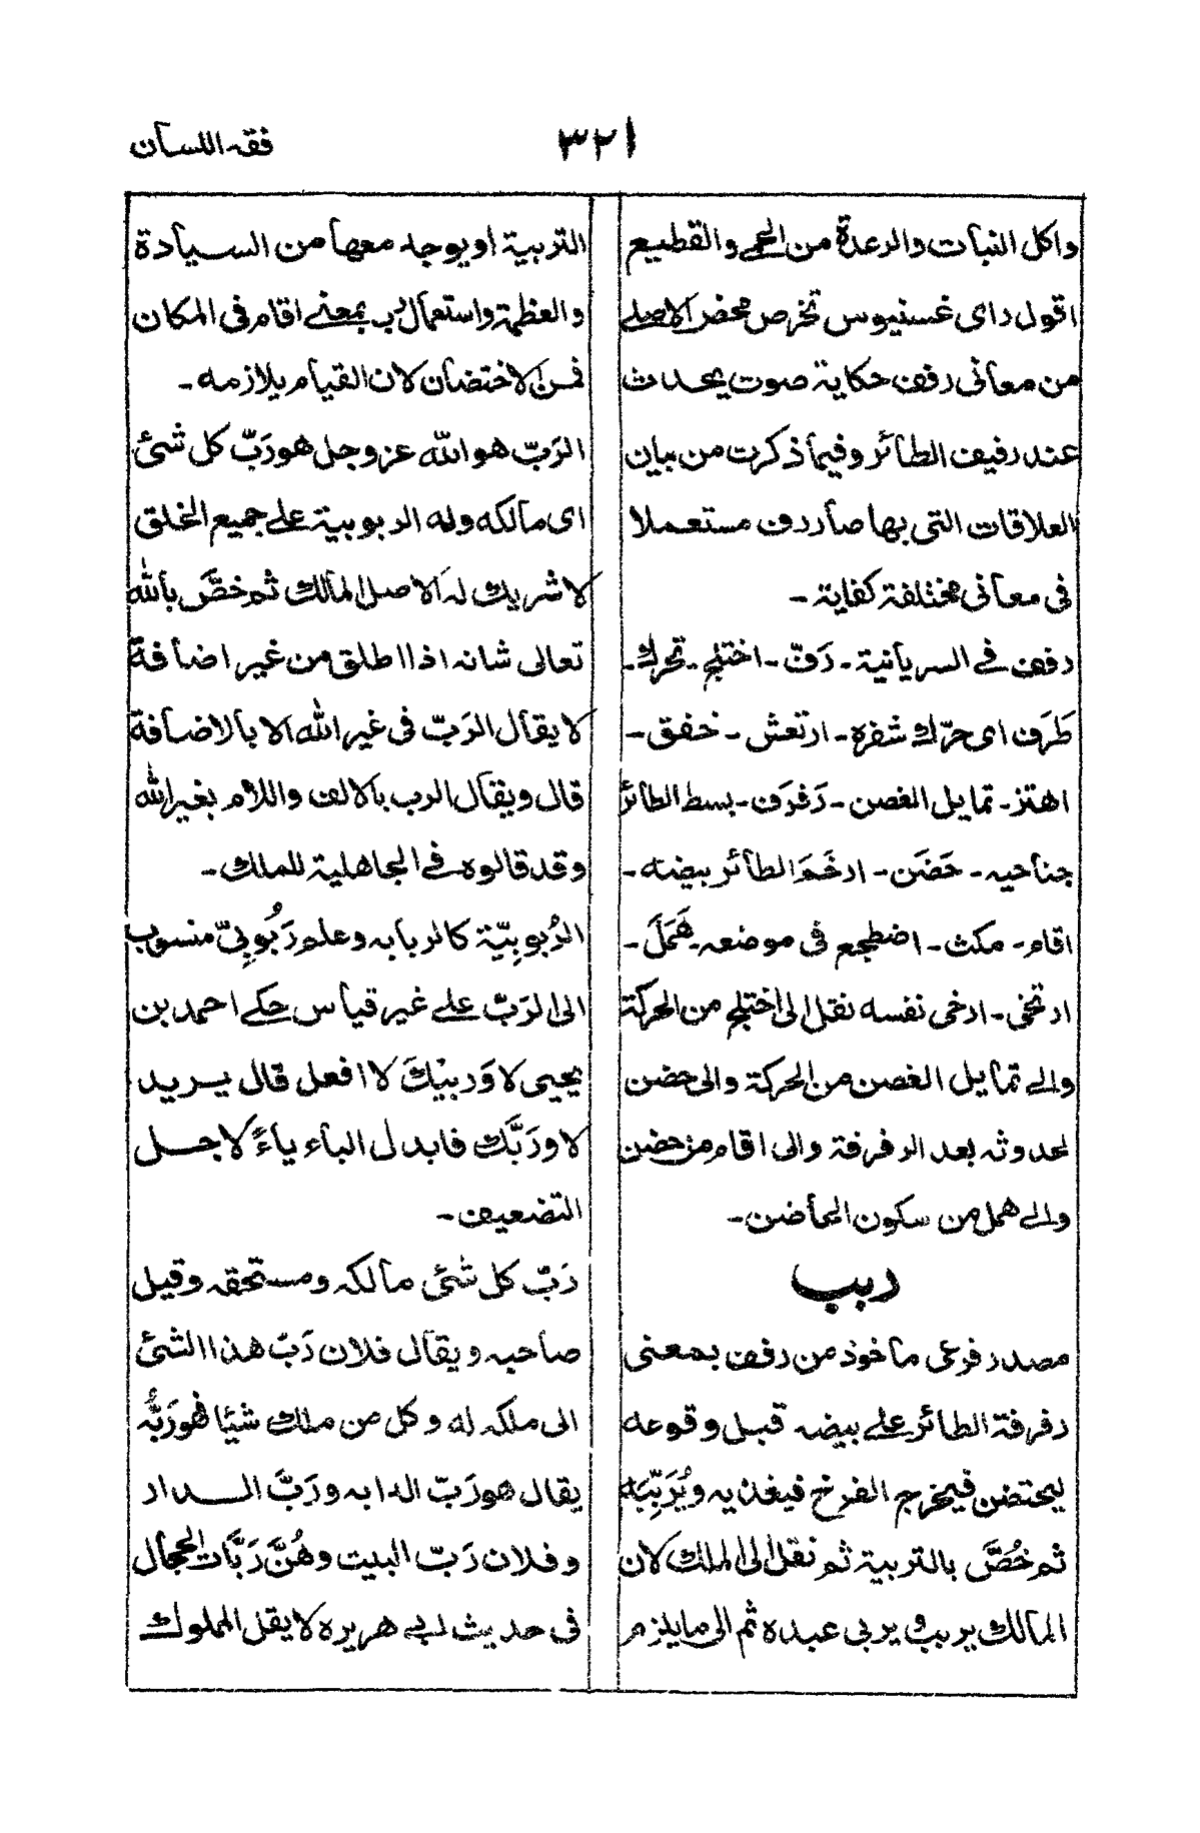 ٣٢١
فقه اللسان
واكل النبات والرعدة من الحمى والقطيع
اقول داى غسنيوس تخرص محض الاصلى
من معانى رفف حكاية صوت يحدث
عند رفيف الطائر وفيما ذكرت من بيان
العلاقات التى بها صار رف مستعملا
فى معانى مختلفة كفاية -
رفف فى السريانية - رَفّ - اختلج - تحرك -
طَرَف اى حرّك شفره - ارتعش - خفق -
اهتز - تمايل الغصن - رَفرَف - بسط الطائر
جناحيه - حَضَن - ارخَمَ الطائر بيضه -
اقام - مكث - اضطجع فى موضعه - هَمَلَ -
ارتخى - ارخى نفسه نقل الى اختلج من الحركة
والى تمايل الغصن من الحركة والى حضن
لحدوثه بعد الرفرفة والى اقام من حضن
والى همل من سكون الحاضن -
ربب
مصدر فرعى ماخوذ من رفف بمعنى
رفرفة الطائر على بيضه قبل وقوعه
ليحتضن فيخرج الفرخ فيغذيه ويُرَبِّيَه
ثم خُصَّ بالتربية ثم نقل الى الملك لان
المالك يربب ويربى عبده ثم الى مايلزم
التربية اويوجد معها من السيادة
والعظمة واستعمال رب بمعنى اقام فى المكان
فمن الاختضان لان القيام يلازمه -
الرَبّ هو الله عز وجل هو رَبّ كل شئ
اى مالكه وله الربوبية على جميع الخلق
لا شريك له الاصل المالك ثم خصَّ بالله
تعالى شانه اذا اطلق من غير اضافة
لا يقال الرَبّ فى غير الله الا بالاضافة
قال ويقال الرب بالالف واللام بغير الله
وقد قالوه فى الجاهلية للملك -
الرُبوبِيّة كالربابه وعلم رَبُوبِىّ منسوب
الى الرَبّ على غير قياس حكى احمد بن
يحيى لا وَربيْكَ لا افعل قال يريد
لا ورَبَّك فابدل الباء ياءً لاجل
التضعيف -
رَبّ كل شئ مالكه ومستحقه وقيل
صاحبه ويقال فلان رَبّ هذا الشئ
اى ملكه له وكل من ملك شيئا فهو رَبُّه
يقال هو رَبّ الدابه ورَبّ الدار
وفلان رَبّ البيت وهُنَّ رَبَّات الحجال
فى حديث ابى هريره لا يقل المملوك